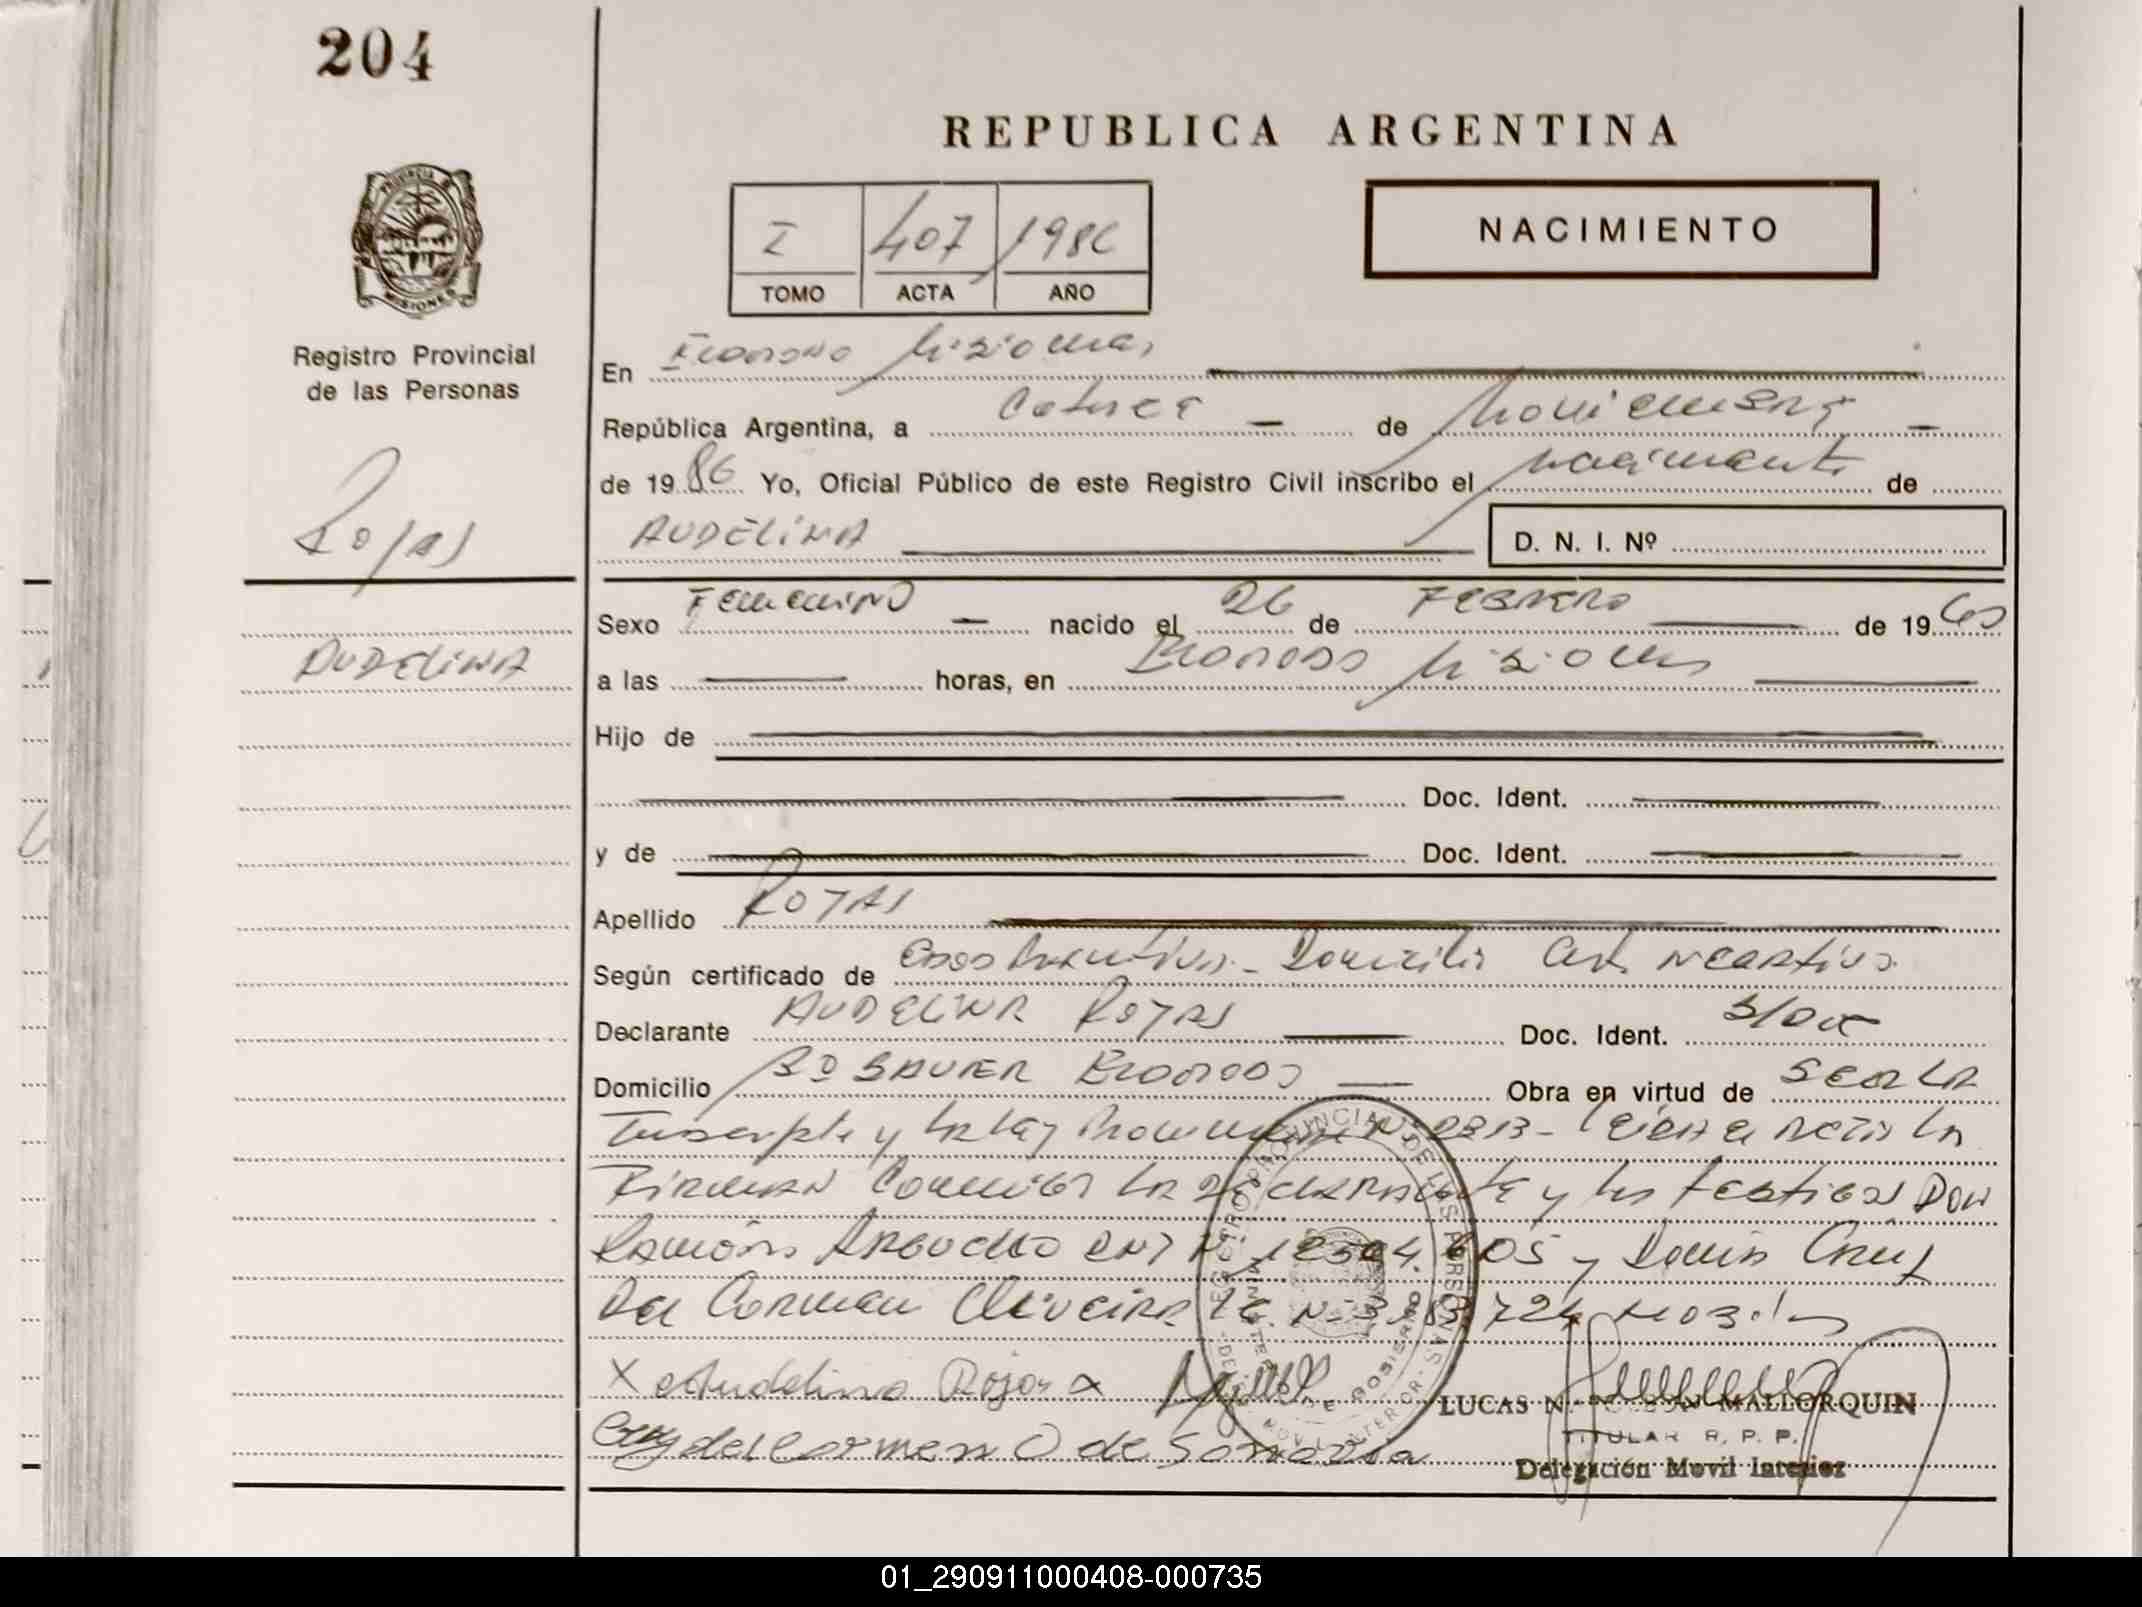 204
REPUBLICA ARGENTINA
NACIMIENTO
I 407 1986
TOMO ACTA AÑO
PROVINCIA DE MISIONES
Registro Provincial
de las Personas
En Eldorado Misiones
República Argentina, a Catorce — de Noviembre —
de 1986 Yo, Oficial Público de este Registro Civil inscribo el nacimiento de
AUDELINA
D. N. I. Nº
Rojas
AUDELINA
Sexo Femenino — nacido el 26 de FEBRERO de 19
a las horas, en Eldorado Misiones
Hijo de
Doc. Ident.
y de Doc. Ident.
Apellido ROJAS
Según certificado de Domicilio Cert. negativo
Declarante AUDELINA ROJAS Doc. Ident.
Domicilio Bº BAUER Eldorado Obra en virtud de
y la Ley Leida el Acta la
Firman Conmigo la declarante y los testigos Don
Ramón DNI Nº 05 y Doña Cruz
Del Carmen Oliveira LC Nº 724
X Audelina Rojas
Cruz del Carmen O de
REGISTRO PROVINCIAL DE LAS PERSONAS
LUCAS N. MALLORQUIN
TITULAR R. P. P.
Delegación Movil Interior
01_290911000408-000735